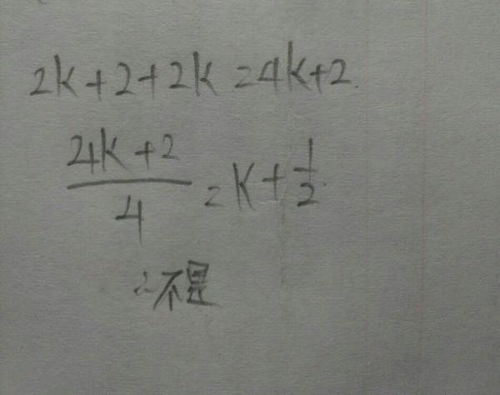 2k+2+2k=4k+2.
(4k+2)/4=k+1/2.
∴不是